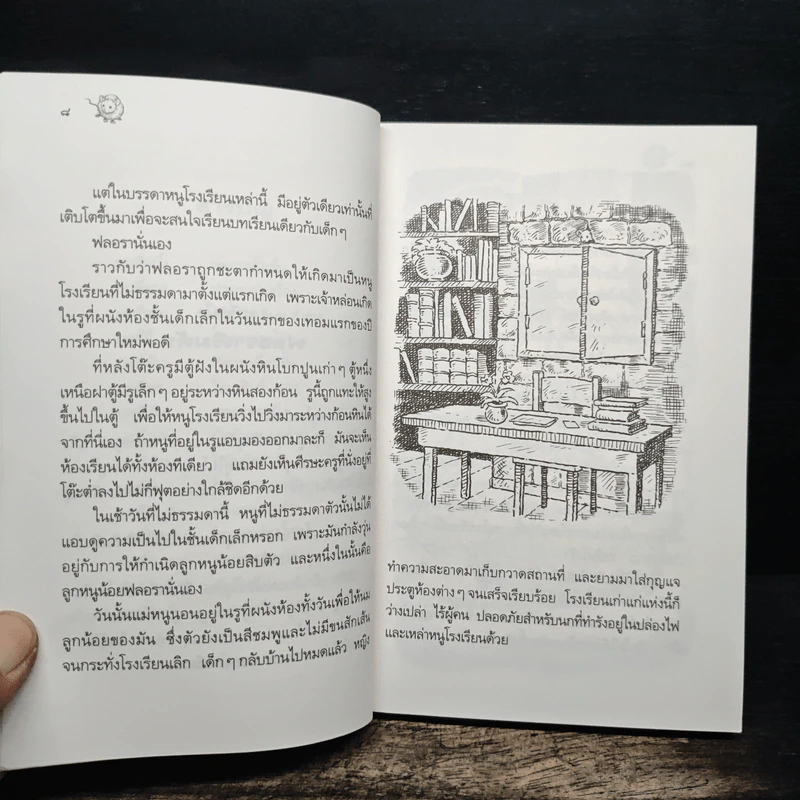 ๘
แต่ในบรรดาหนูโรงเรียนเหล่านี้ มีอยู่ตัวเดียวเท่านั้นที่
เติบโตขึ้นมาเพื่อจะสนใจเรียนบทเรียนเดียวกับเด็กๆ
ฟลอรานั่นเอง
ราวกับว่าฟลอราถูกชะตากำหนดให้เกิดมาเป็นหนู
โรงเรียนที่ไม่ธรรมดามาตั้งแต่แรกเกิด เพราะเจ้าหล่อนเกิด
ในรูที่ผนังห้องชั้นเด็กเล็กในวันแรกของเทอมแรกของปี
การศึกษาใหม่พอดี
ที่หลังโต๊ะครูมีตู้ฝังในผนังหินโบกปูนเก่าๆ ตู้หนึ่ง
เหนือฝาตู้มีรูเล็กๆ อยู่ระหว่างหินสองก้อน รูนี้ถูกแทะให้สูง
ขึ้นไปในตู้ เพื่อให้หนูโรงเรียนวิ่งไปวิ่งมาระหว่างก้อนหินได้
จากที่นี่เอง ถ้าหนูที่อยู่ในรูแอบมองออกมาละก็ มันจะเห็น
ห้องเรียนได้ทั้งห้องทีเดียว แถมยังเห็นศีรษะครูที่นั่งอยู่ที่
โต๊ะต่ำลงไปไม่กี่ฟุตอย่างใกล้ชิดอีกด้วย
ในเช้าวันที่ไม่ธรรมดานี้ หนูที่ไม่ธรรมดาตัวนั้นไม่ได้
แอบดูความเป็นไปในชั้นเด็กเล็กหรอก เพราะมันกำลังวุ่น
อยู่กับการให้กำเนิดลูกหนูน้อยสิบตัว และหนึ่งในนั้นคือ
ลูกหนูน้อยฟลอรานั่นเอง
วันนั้นแม่หนูนอนอยู่ในรูที่ผนังห้องทั้งวันเพื่อให้นม
ลูกน้อยของมัน ซึ่งตัวยังเป็นสีชมพูและไม่มีขนสักเส้น
จนกระทั่งโรงเรียนเลิก เด็กๆ กลับบ้านไปหมดแล้ว หญิง
ทำความสะอาดมาเก็บกวาดสถานที่ และยามมาใส่กุญแจ
ประตูห้องต่างๆ จนเสร็จเรียบร้อย โรงเรียนเก่าแก่แห่งนี้ก็
ว่างเปล่า ไร้ผู้คน ปลอดภัยสำหรับนกที่ทำรังอยู่ในปล่องไฟ
และเหล่าหนูโรงเรียนด้วย